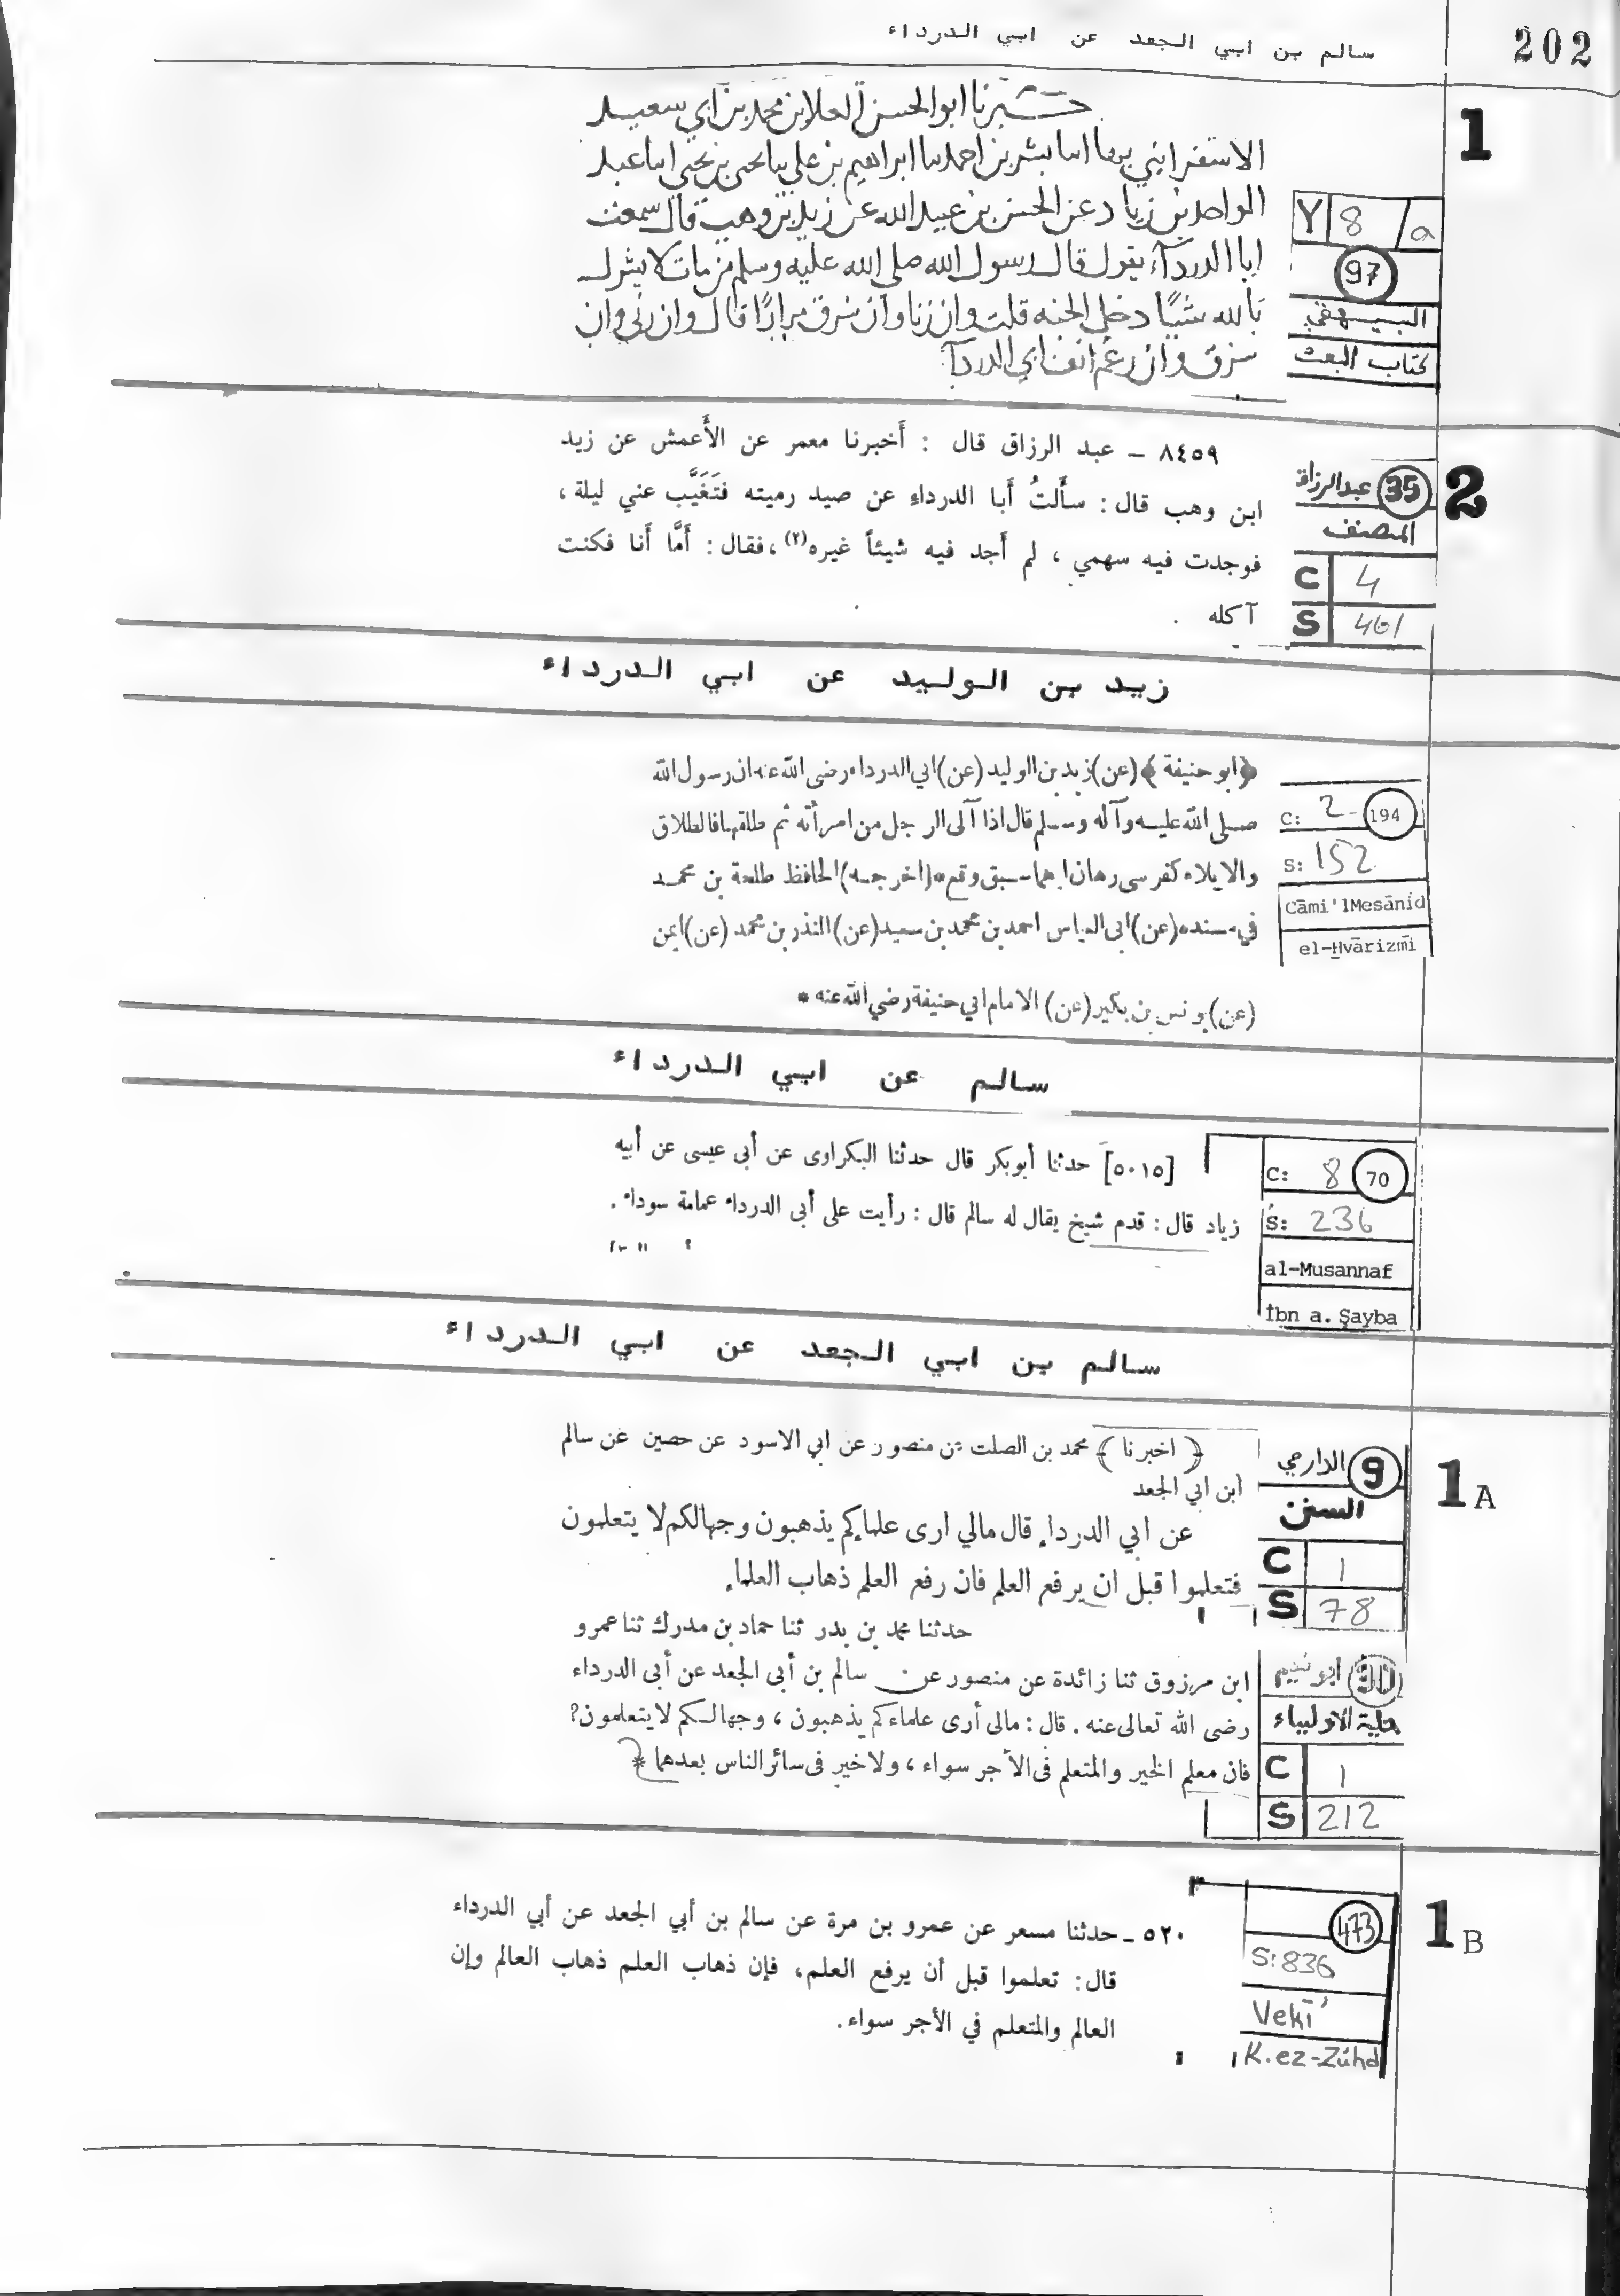 202
سالم بن ابي الجعد عن ابي الدرداء
1
ابوالحسن العلا بن محمد بن ابي سعيد
الاسفرايني بها انبا بشر بن احمد ثنا ابراهيم بن علي ثنا يحيى بن يحيى انبا عبد
الواحد بن زياد عن الحسن بن عبيد الله عن زيد بن وهب قال سمعت
ابا الدرداء يقول قال رسول الله صلى الله عليه وسلم من مات لا يشرك
بالله شيئًا دخل الجنه قلت وان زنا وان سرق مرارًا قال وان زنى وان
سرق وان رغم انف ابي الدردآ
Y 8 / a
97
البيهقي
كتاب البعث
2
٨٤٥٩ – عبد الرزاق قال : أَخبرنا معمر عن الأَعمش عن زيد
ابن وهب قال : سأَلتُ أَبا الدرداءِ عن صيد رميته فتَغَيَّب عني ليلة ،
فوجدت فيه سهمي ، لم أَجد فيه شيئاً غيره(٢) ، فقال : أَمَّا أَنا فكنت
آكله .
35 عبدالرزاق
المصنف
C 4
S 461
زيد بن الوليد عن ابي الدرداء
﴿ابو حنيفة﴾ (عن) زيد بن الوليد (عن) ابي الدرداء رضى الله عنه ان رسول الله
صلى الله عليه وآله وسلم قال اذا آلى الرجل من امرأته ثم طلقها فالطلاق
والايلاء كفرسى رهان ايهما سبق وقع * (اخرجه) الحافظ طلحة بن محمد
في مسنده (عن) ابى العباس احمد بن محمد بن سعيد (عن) المنذر بن محمد (عن) ايمن
(عن) يونس بن بكير (عن) الامام ابي حنيفة رضي الله عنه *
C: 2 - 194
S: 152
Cāmi'lMesānid
el-Hvārizmī
سالم عن ابي الدرداء
[٥٠١٥] حدثنا أبوبكر قال حدثنا البكراوى عن أبى عيسى عن أبيه
زياد قال : قدم شيخ يقال له سالم قال : رأيت على أبى الدرداء عمامة سوداء .
C: 8 70
S: 236
al-Musannaf
İbn a. Şayba
سالم بن ابي الجعد عن ابي الدرداء
﴿ اخبرنا ﴾ محمد بن الصلت بن منصور عن ابي الاسود عن حصين عن سالم
ابن ابي الجعد
عن ابي الدرداء قال مالي ارى علماءكم يذهبون وجهالكم لا يتعلمون
فتعلموا قبل ان يرفع العلم فان رفع العلم ذهاب العلماء
9 الدارمي
السنن
C 1
S 78
1 A
حدثنا محمد بن بدر ثنا حماد بن مدرك ثنا عمرو
ابن مرزوق ثنا زائدة عن منصور عن سالم بن أبى الجعد عن أبى الدرداء
رضى الله تعالى عنه . قال : مالى أرى علماءكم يذهبون ، وجهالكم لا يتعلمون ؟
فان معلم الخير والمتعلم فى الأجر سواء ، ولا خير فى سائر الناس بعدهما *
30 ابو نعيم
حلية الاولياء
C 1
S 212
٥٢٠ ـ حدثنا مسعر عن عمرو بن مرة عن سالم بن أبي الجعد عن أبي الدرداء
قال : تعلموا قبل أن يرفع العلم، فإن ذهاب العلم ذهاب العالم وإن
العالم والمتعلم في الأجر سواء.
473
S:836
Vekī'
K.ez-Zühd
1 B